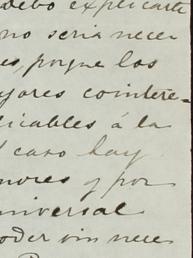 debo explicarte
no seria nece
es, porque los
yores cointere=
licables á la
l caso hay
nores y por
universal
oder sin nece